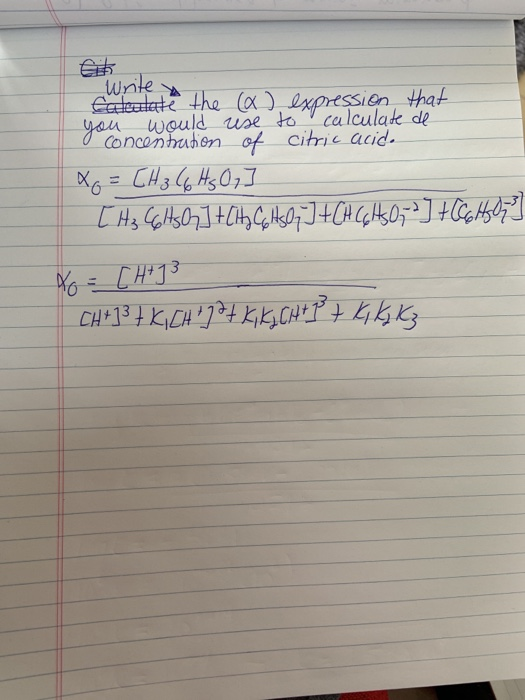 Cit
Write
Calculate the (α) expression that
you would use to calculate de
concentration of citric acid.
α₀ = [H₃C₆H₅O₇]
[H₃C₆H₅O₇]+[H₂C₆H₅O₇⁻]+[HC₆H₅O₇⁻²]+[C₆H₅O₇⁻³]
α₀ = [H⁺]³
[H⁺]³ + K₁[H⁺]² + K₁K₂[H⁺]³ + K₁K₂K₃